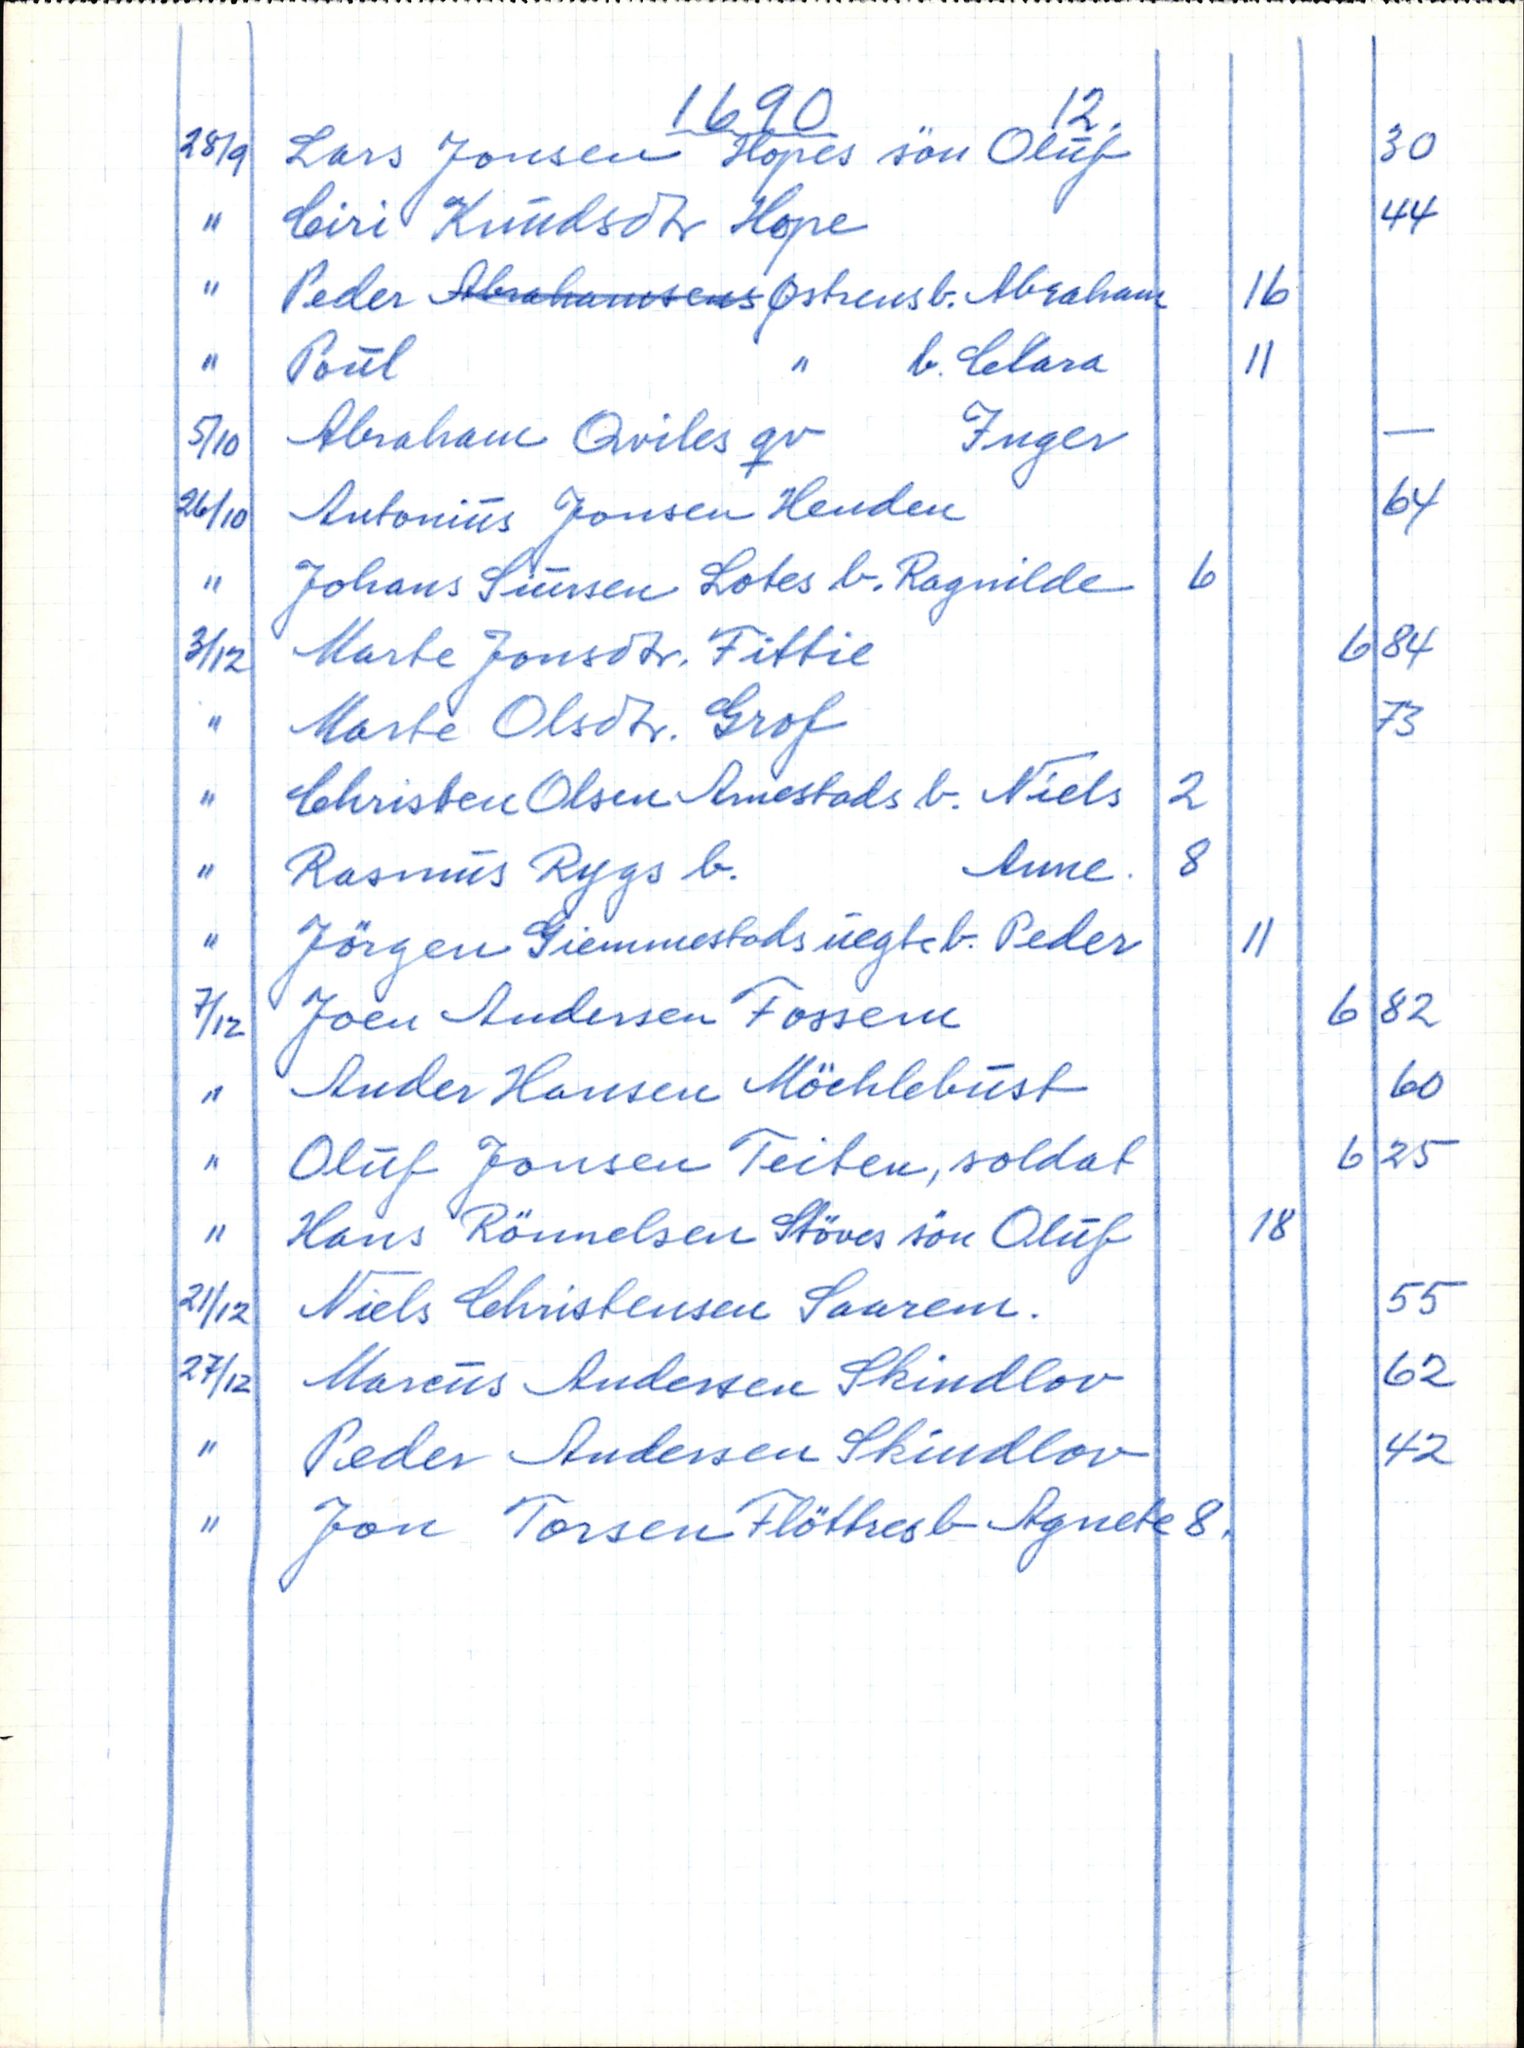 1690 12.
28/9 Lars Jonsen Hopes sön Oluf 30
" Ciri Knudsdtr Hope 44
" Peder Abrahamsens Østrens b. Abraham 16
" Poul " b. Clara 11
5/10 Abraham Qviles qv Inger —
26/10 Antonius Jonsen Henden 64
" Johans Siursen Lotes b. Ragnilde 6
3/12 Marte Jonsdtr. Fittie 6 84
" Marte Olsdtr. Grof 73
" Christen Olsen Arnestads b. Niels 2
" Rasmus Rygs b. Anne. 8
" Jörgen Giemmestads uegte b. Peder 11
7/12 Joen Andersen Fossem 6 82
" Ander Hansen Möchlebust 60
" Oluf Jonsen Teiten, soldat 6 25
" Hans Rönnelsen Stöves sön Oluf 18
21/12 Niels Christensen Saarem. 55
27/12 Marcus Andersen Skindlov 62
" Peder Andersen Skindlov 42
" Jon Torsen Flöttres b Agnete 8.